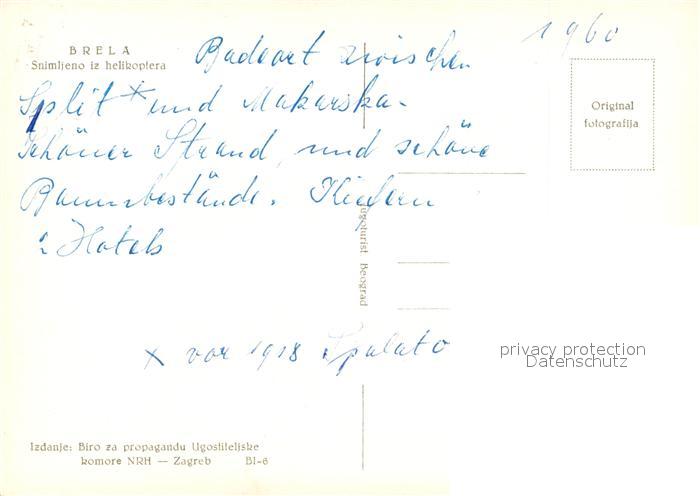 BRELA
Snimljeno iz helikoptera
1960
Original
fotografija
Badeort zwischen
Split × und Makarska.
Schöner Strand und schöne
Baumbestände. Kiefern
2 Hotels
× vor 1918 Spalato
Jugoturist Beograd
privacy protection
Datenschutz
Izdanje: Biro za propagandu Ugostiteljske
komore NRH — Zagreb BI-6